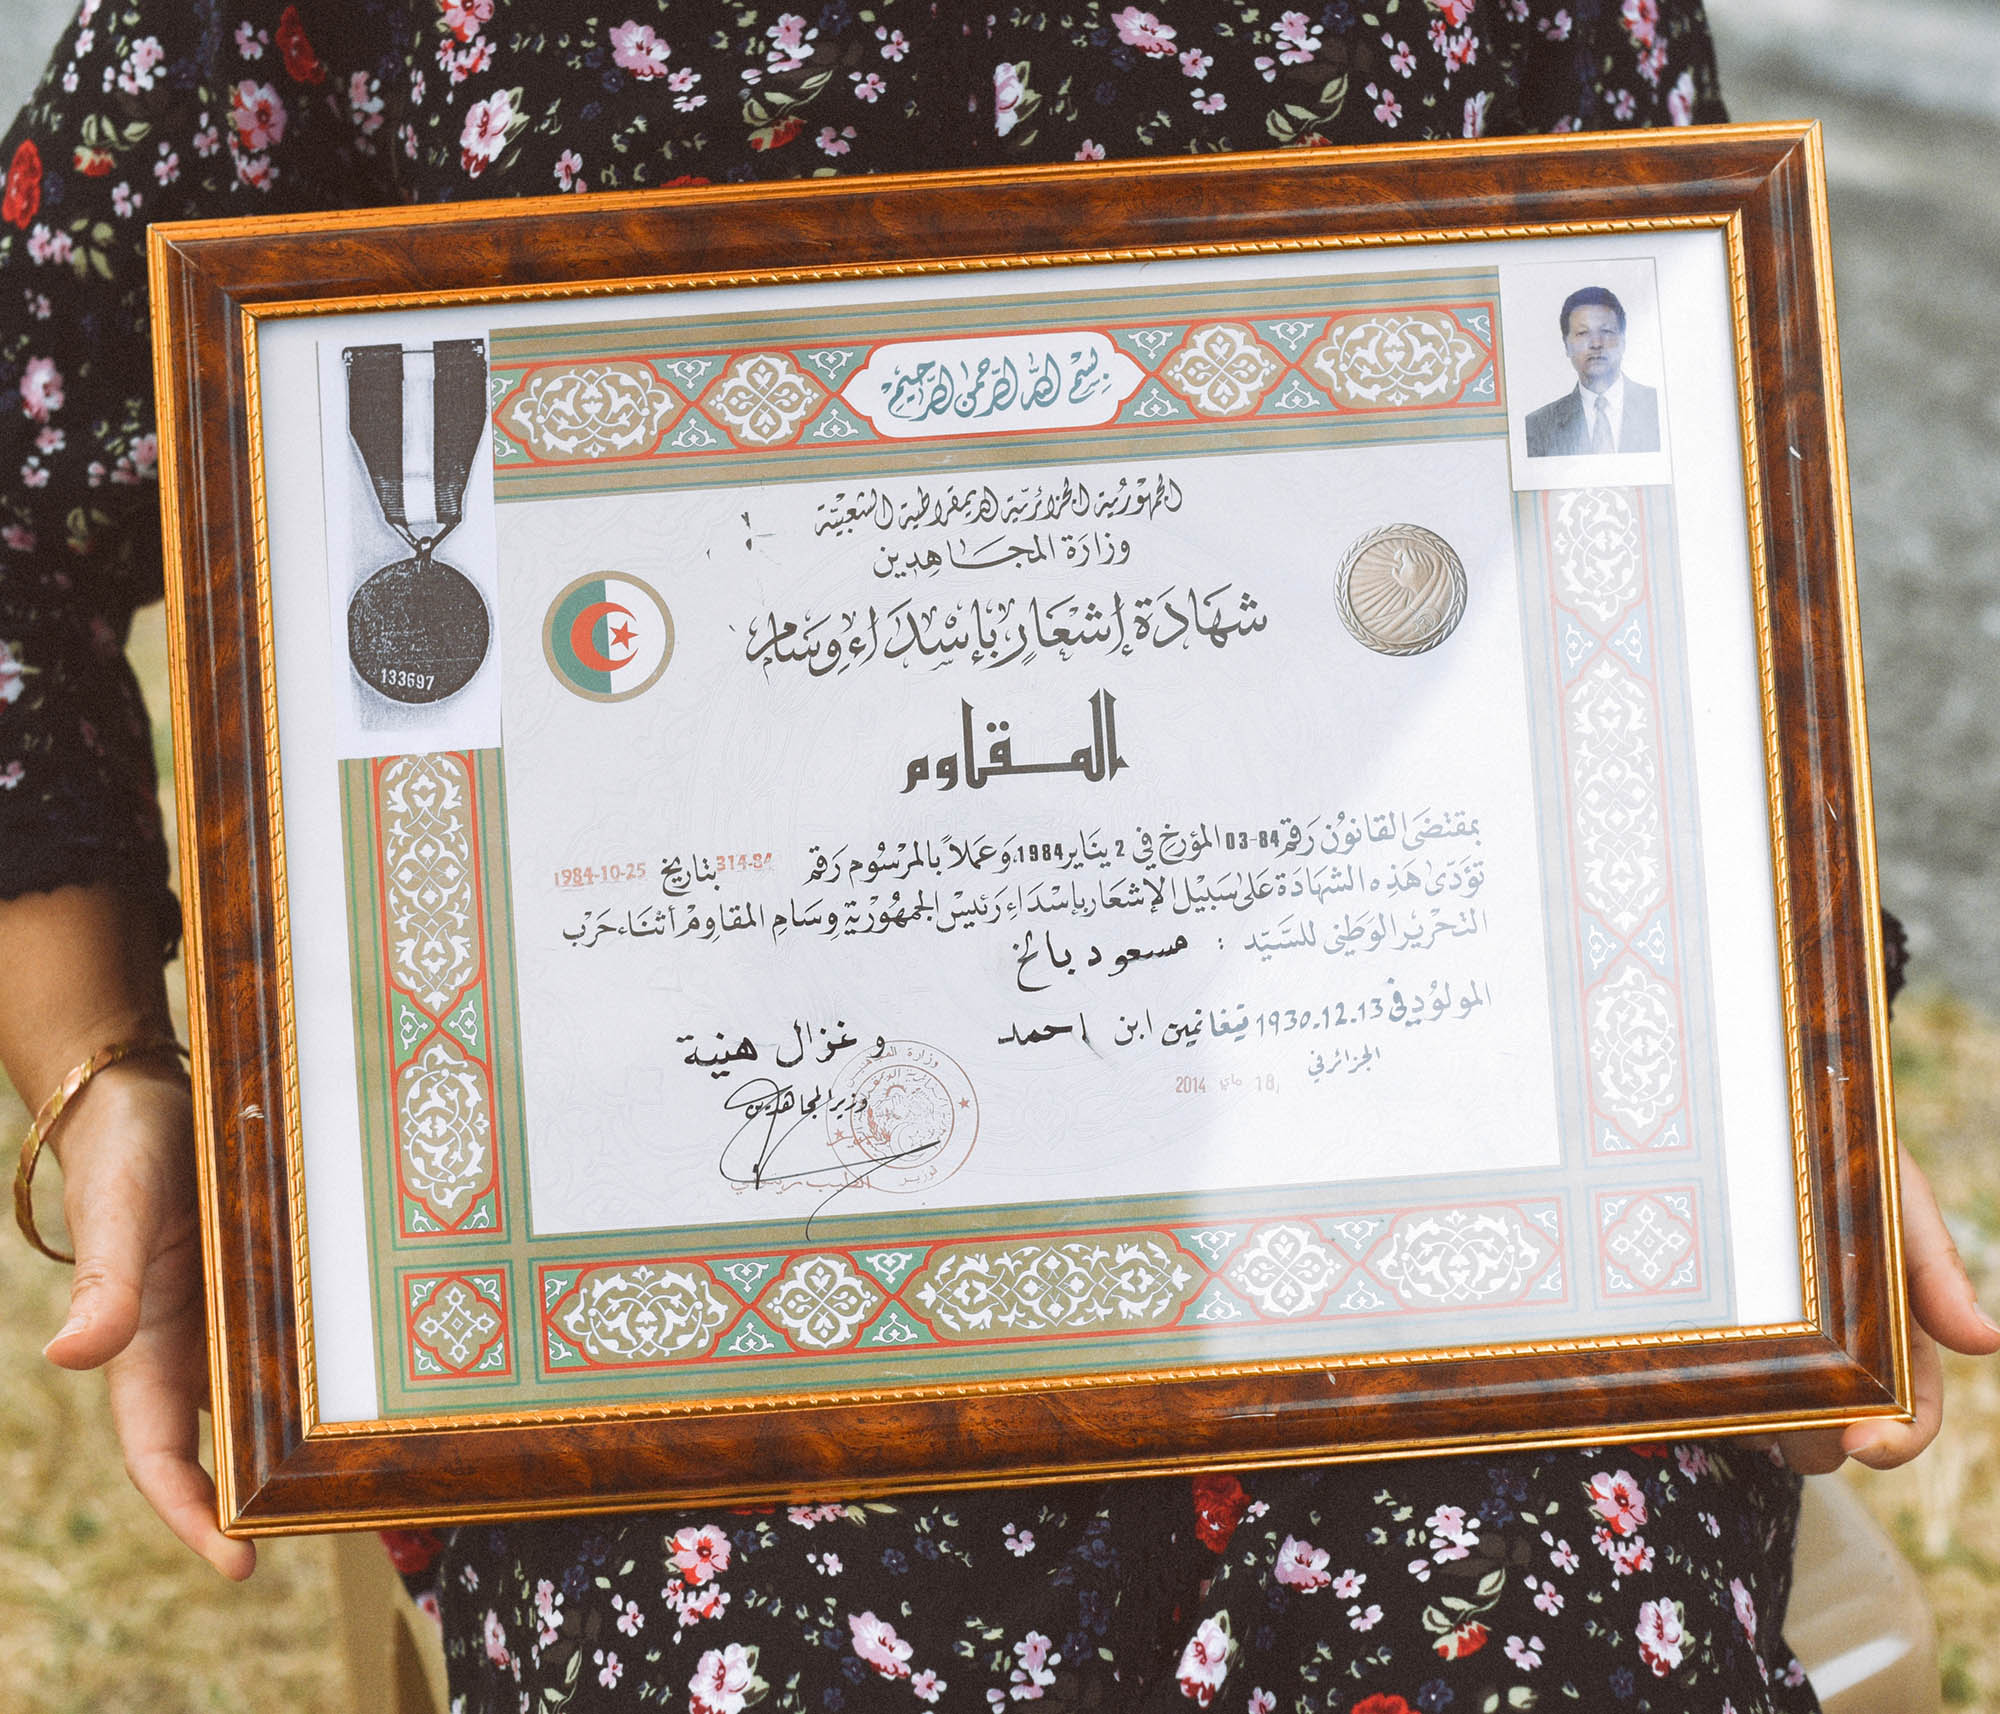 بِسْمِ اللهِ الرَّحْمٰنِ الرَّحِيْمِ
الجُمْهُورِيَّة الجَزَائِرِيَّة الدِيمقراطية الشَّعْبِيَّة
وِزَارَة المجَاهِدِين
شَهَادَة إِشْعَارٍ بِإِسْدَاءِ وِسَام
المقاوم
133697
بمقتضَى القانوُن رَقم 84-03 المؤرخ في 2 ينَاير 1984، وَعَملاً بالمرْسُوم رَقم 84-314 بتاريخ 25-10-1984
تؤدّى هَذِه الشهَادَة عَلى سَبيْل الإشعَار بإسْدَاءِ رَئيْس الجمهُورْية وِسَامِ المقاوِمْ أثنَاء حَرْب
التحْرْير الوَطني للسَّيّد : مسعود بالخ
المولوُد في 13.12.1930 تيغانمين ابن احمد و غزال هنية
الجزائر في 18 ماي 2014
وَزير المجاهدين
الطيب زيتوني